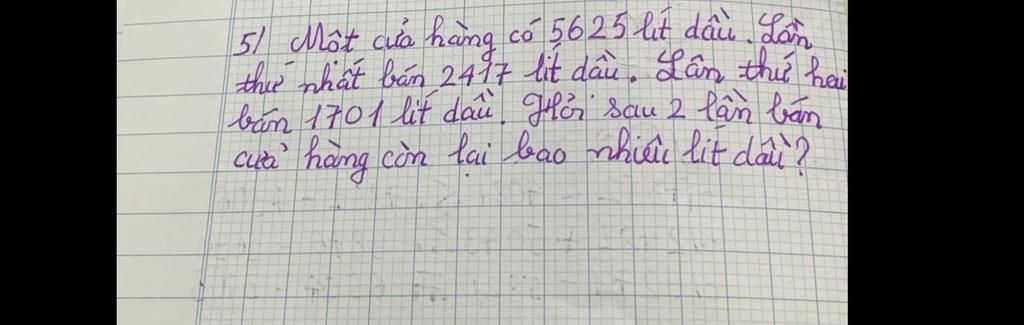 5/ Một cửa hàng có 5625 lít dầu. Lần
thứ nhất bán 2417 lít dầu. Lần thứ hai
bán 1701 lít dầu. Hỏi sau 2 lần bán
cửa hàng còn lại bao nhiêu lít dầu?